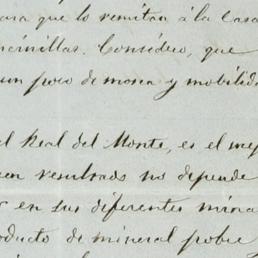 para que lo remitan á la Casa
Encinillas. Considero, que
un poco de mosca y mobilida
al Real del Monte, es el mej
uen resultado no depende
r en sus diferentes mina
oducto de mineral pobre